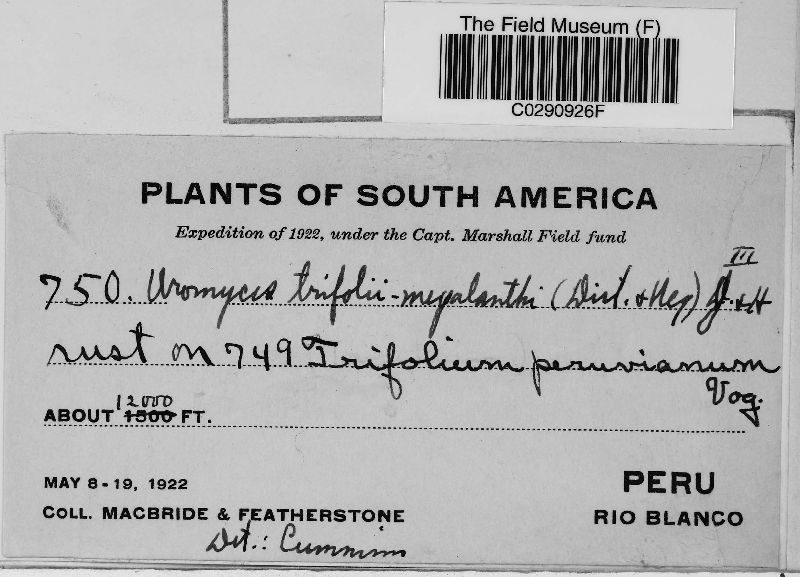 The Field Museum (F)
C0290926F
PLANTS OF SOUTH AMERICA
Expedition of 1922, under the Capt. Marshall Field fund
III
750. Uromyces trifolii-megalanthi (Diet. & Neg) J. & H
rust on 749 Trifolium peruvianum
Vog.
12000
ABOUT 1500 FT.
MAY 8-19, 1922
PERU
COLL. MACBRIDE & FEATHERSTONE
RIO BLANCO
Det.: Cummins